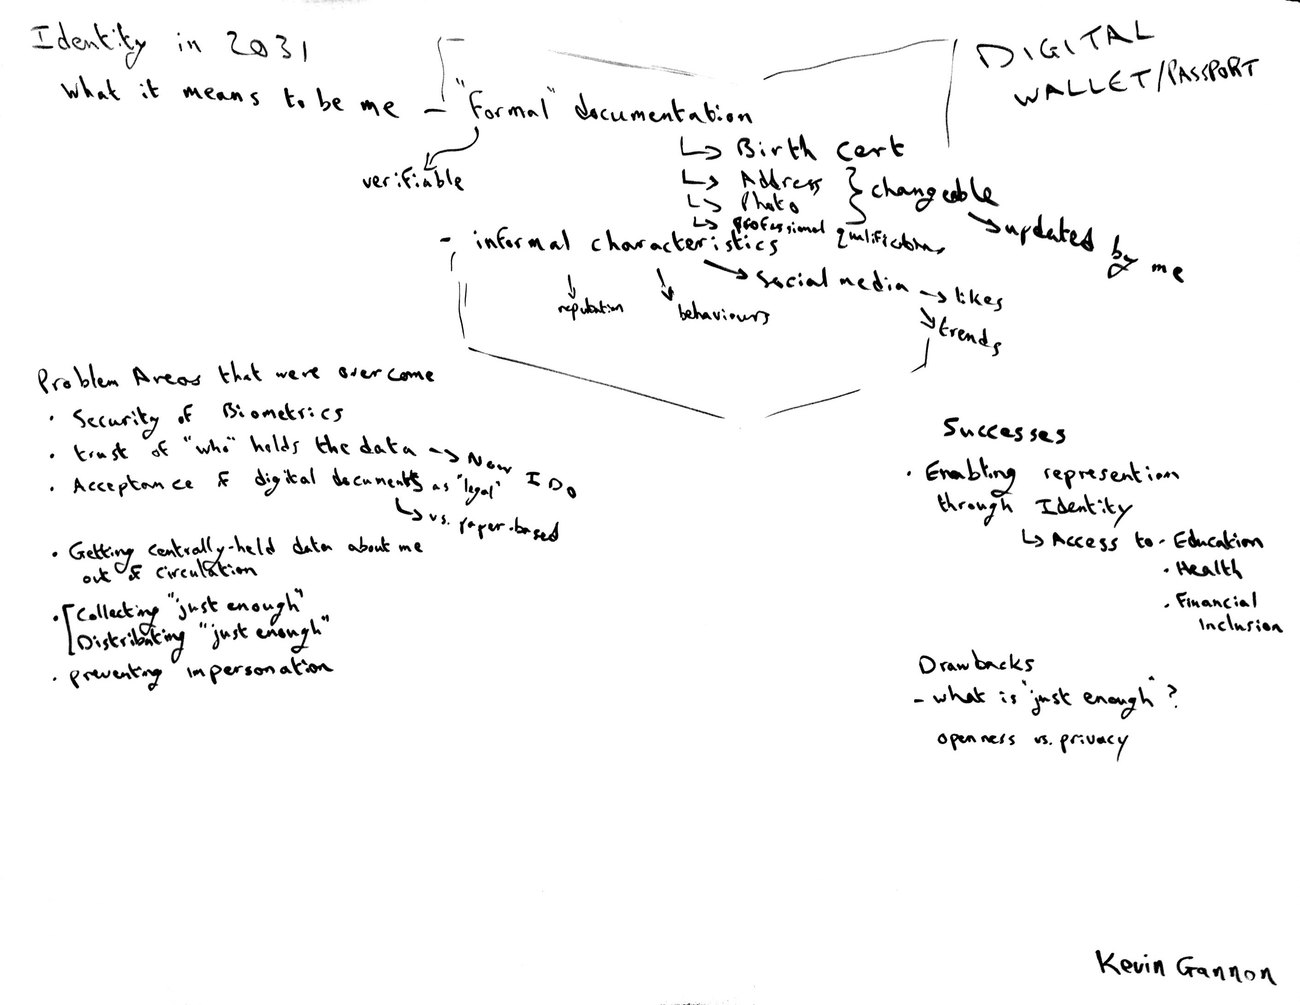 Identity in 2031
DIGITAL
WALLET/PASSPORT
What it means to be me - "Formal" documentation
verifiable
↳ Birth cert
↳ Address } changeable
↳ Photo
↳ professional qualifications
→ updated by me
- informal characteristics
reputation
behaviours
→ Social media → likes
trends
Problem Areas that were overcome
· Security of Biometrics
· trust of "who" holds the data → New IDo
· Acceptance of digital documents as "legal"
↳ vs. paper-based
· Getting centrally-held data about me
out of circulation
· [Collecting "just enough"
Distributing "just enough"
· preventing impersonation
Successes
· Enabling represention
through Identity
↳ Access to · Education
· Health
· Financial
Inclusion
Drawbacks
- what is "just enough"?
openness vs. privacy
Kevin Gannon